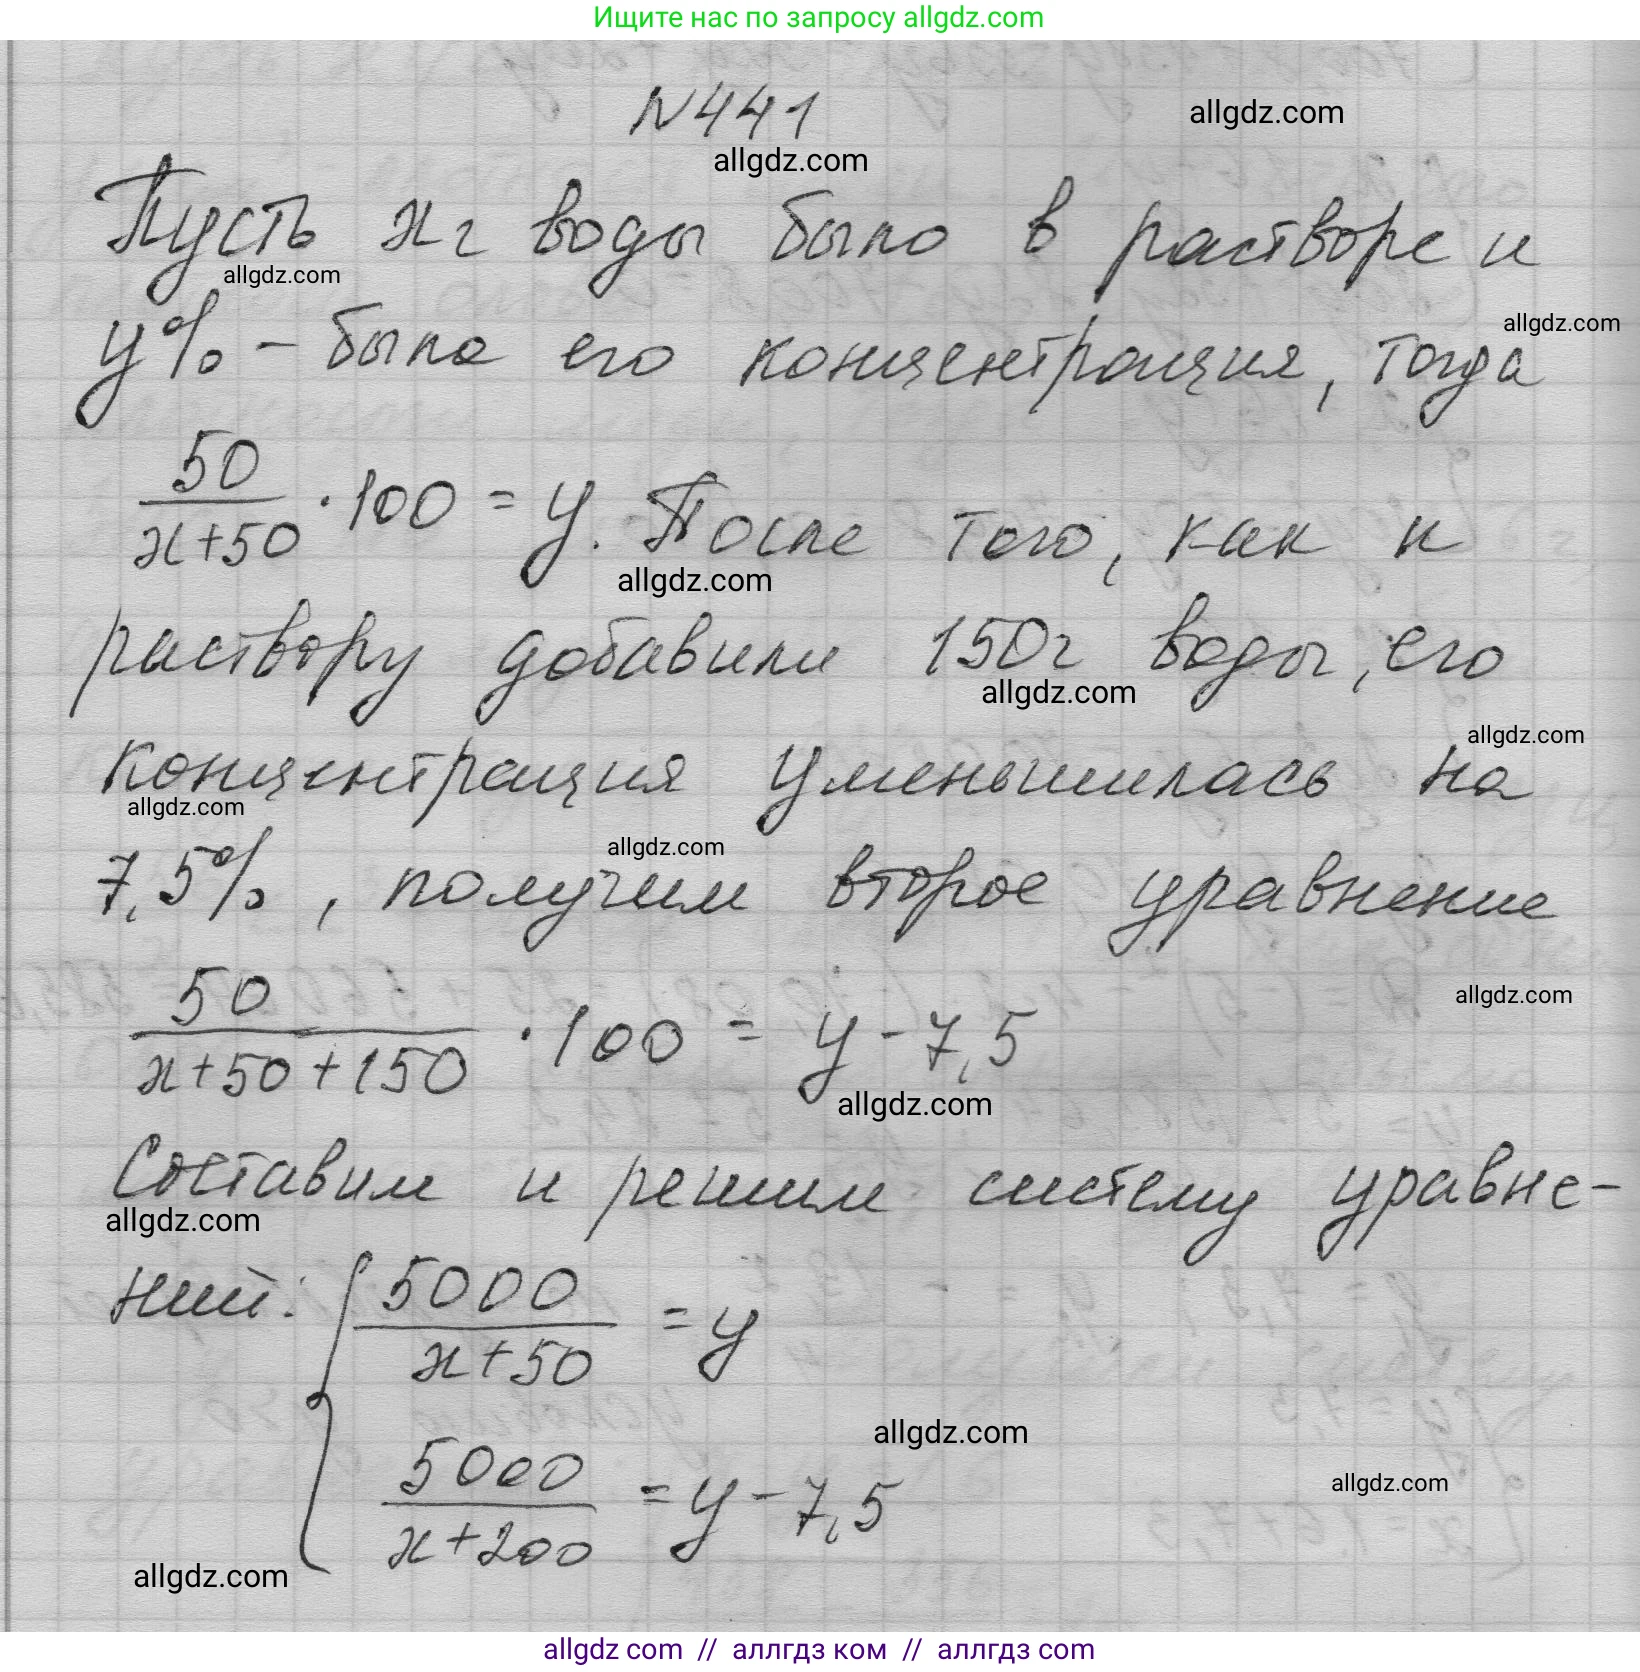 Ищите нас по запросу allgdz.com
N441
allgdz.com
allgdz.com
Пусть x г воды было в растворе и
allgdz.com
allgdz.com
y% – была его концентрация, тогда
50/(x+50) · 100 = y. После того, как к
allgdz.com
раствору добавили 150г воды, его
allgdz.com
allgdz.com
концентрация уменьшилась на
allgdz.com
allgdz.com
7,5%, получим второе уравнение
allgdz.com
50/(x+50+150) · 100 = y - 7,5
allgdz.com
Составим и решим систему уравне-
allgdz.com
ний: { 5000/(x+50) = y
allgdz.com
allgdz.com
5000/(x+200) = y - 7,5
allgdz.com
allgdz com // аллгдз ком // allgdz.com